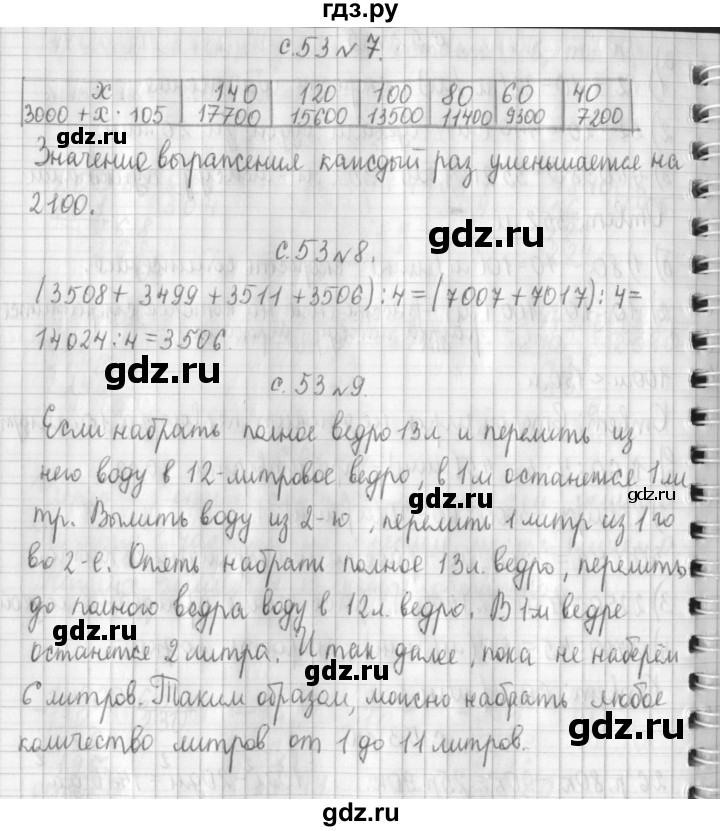 гдз.ру
с.53 № 7.
x 140 120 100 80 60 40
3000 + x · 105 17700 15600 13500 11400 9300 7200
gdz.ru
Значение выражения каждый раз уменьшается на
2100.
gdz.ru
с.53 № 8.
(3508 + 3499 + 3511 + 3506) : 4 = (7007 + 7017) : 4 =
14024 : 4 = 3506.
gdz.ru
с. 53 № 9.
Если набрать полное ведро 13 л и перелить из
него воду в 12-литровое ведро, в 1 м останется 1 ли
gdz.ru
gdz.ru
тр. Вылить воду из 2-го, перелить 1 литр из 1 го
во 2-е. Опять набрать полное 13 л. ведро, перелить
до полного ведра воду в 12 л. ведро. В 1-м ведре
gdz.ru
останется 2 литра. И так далее, пока не наберём
gdz.ru
6 литров. Таким образом, можно набрать любое
gdz.ru
количество литров от 1 до 11 литров.
gdz.ru